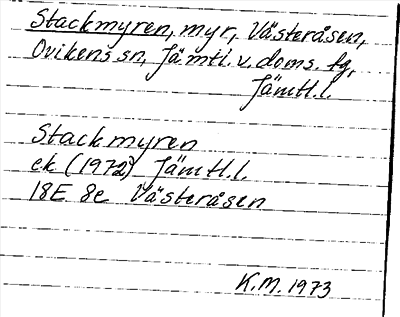 Stackmyren, myr, Västeråsen,
Ovikens sn, Jämtl. v. doms. tg,
Jämtl.l.
Stackmyren
ek (1972) Jämtl.l.
18E 8e Västeråsen
K.M. 1973